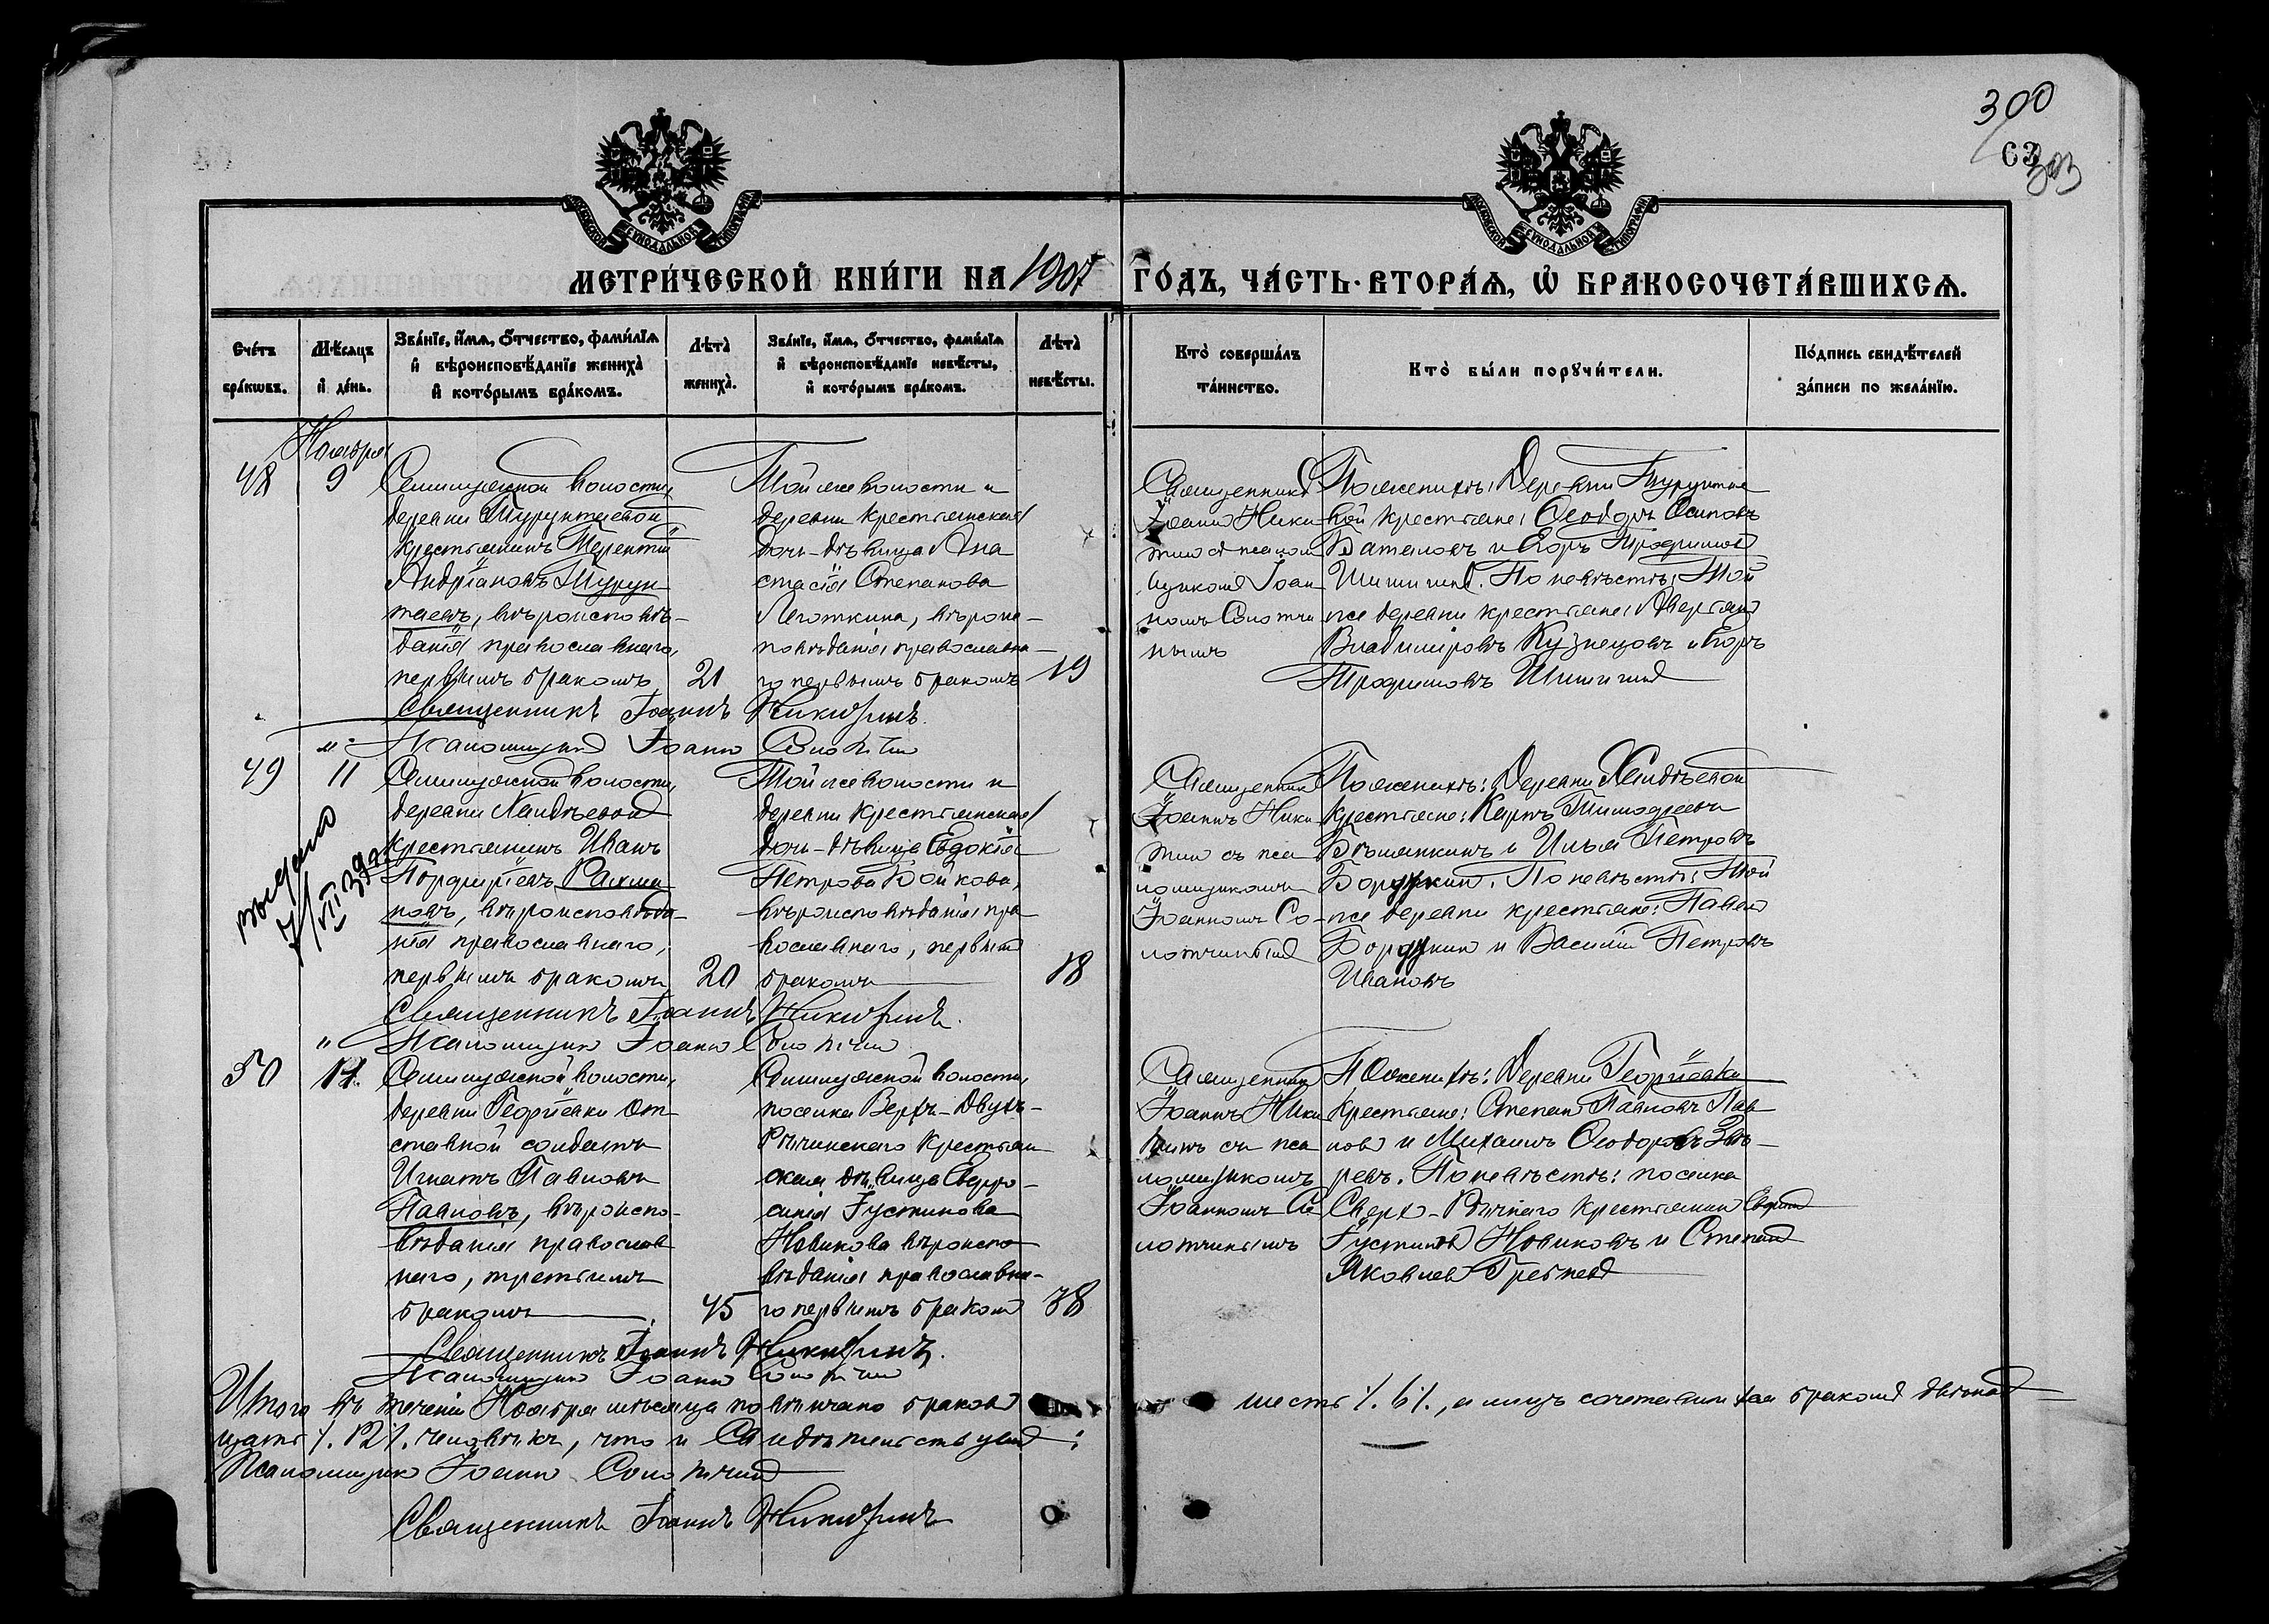 300
63
303
МЕТРИ́ЧЕСКОЙ КНИ́ГИ НА 1907 ГО́ДЪ, ЧА́СТЬ ВТОРА́Ѧ, Ѽ БРАКОСОЧЕТА́ВШИХСѦ.
Сче́тъ бра́кѡвъ.
Мѣ́сяцъ и де́нь.
Зва́нїе, и́мѧ, о́тчество, фами́лїѧ и вѣроисповѣ́данїе жениха̀ и кото́рымъ бра́комъ.
Лѣта̀ жениха̀.
Зва́нїе, и́мѧ, о́тчество, фами́лїѧ и вѣроисповѣ́данїе невѣ́сты, и кото́рымъ бра́комъ.
Лѣта̀ невѣ́сты.
Кто̀ соверша́лъ та́инство.
Кто̀ бы́ли порꙋчи́тели.
По́дпись свидѣ́телей за́писи по жела́нїю.
Ноября
48
9
Семилужной волости,
деревни Турунтаевой
крестьянинъ Терентій
Андріановъ Турун
таевъ, вѣроисповѣ-
данія православнаго,
первымъ бракомъ
21
Той же волости и
деревни крестьянская
дочь-дѣвица Ана
стасія Степанова
Леготкина, вѣроис-
повѣданія православна-
го первымъ бракомъ
19
Священникъ
Іоаннъ Ники
тинъ съ псалом
щикомъ Іоан
номъ Солотчи
нымъ
По женихѣ: Деревни Турунтае
вой крестьяне: Ѳеодоръ Осиповъ
Батеновъ и Егоръ Трофимовъ
Шишигинъ. По невѣстѣ: Той
же деревни крестьяне:
Владиміровъ Кузнецовъ и Егоръ
Трофимовъ Шишигинъ
Священникъ Іоаннъ Никитинъ.
Псаломщикъ Іоаннъ Солотчинъ
49
" 11
Семилужной волости,
деревни Халдѣевой
крестьянинъ Иванъ
Порфирьевъ Рахма
новъ, вѣроисповѣда-
нія православнаго,
первымъ бракомъ
20
Той же волости и
деревни крестьянская
дочь-дѣвица Евдокія
Петрова Бойкова,
вѣроисповѣданія пра-
вославнаго, первымъ
бракомъ
18
Священникъ
Іоаннъ Ники
тинъ съ пса
ломщикомъ
Іоанномъ Со-
лотчинымъ
По женихѣ: Деревни Халдѣевой
крестьяне: Карпъ Тимофеевъ
и Илья Петровъ
По невѣстѣ: Той
же деревни крестьяне: Павелъ
и Василій Петровъ
Ивановъ
выдано
Священникъ Іоаннъ Никитинъ.
Псаломщикъ Іоаннъ Солотчинъ
50
" 14.
Семилужной волости,
деревни Георгіевки от-
ставной солдатъ
Игнатъ Павловъ
Павловъ, вѣроиспо-
вѣданія православ
наго, третьимъ
бракомъ
45
Семилужной волости,
поселка Верхъ-Двухъ-
Рѣчинскаго крестьян
ская дѣвица Евфро-
синія Іустинова
Новикова вѣроиспо
вѣданія православна-
го первымъ бракомъ
38
Священникъ
Іоаннъ Ники
тинъ съ пса
ломщикомъ
Іоанномъ Со
лотчинымъ
По женихѣ: Деревни Георгіевки
крестьяне: Степанъ Павловъ Пав
ловъ и Михаилъ Ѳеодоровъ Звѣ-
ревъ. По невѣстѣ: поселка
крестьянинъ
Іустиновъ Новиковъ и Степанъ
Яковлевъ Гребневъ
Священникъ Іоаннъ Никитинъ.
Псаломщикъ Іоаннъ Солотчинъ
Итого въ теченіи Ноября мѣсяца повѣнчано браковъ шесть /. 6 /., а лицъ сочетавшихся бракомъ двѣнад
цать /. 12 /. человѣкъ, что и свидѣтельствуемъ:
Псаломщикъ Іоаннъ Солотчинъ
Священникъ Іоаннъ Никитинъ